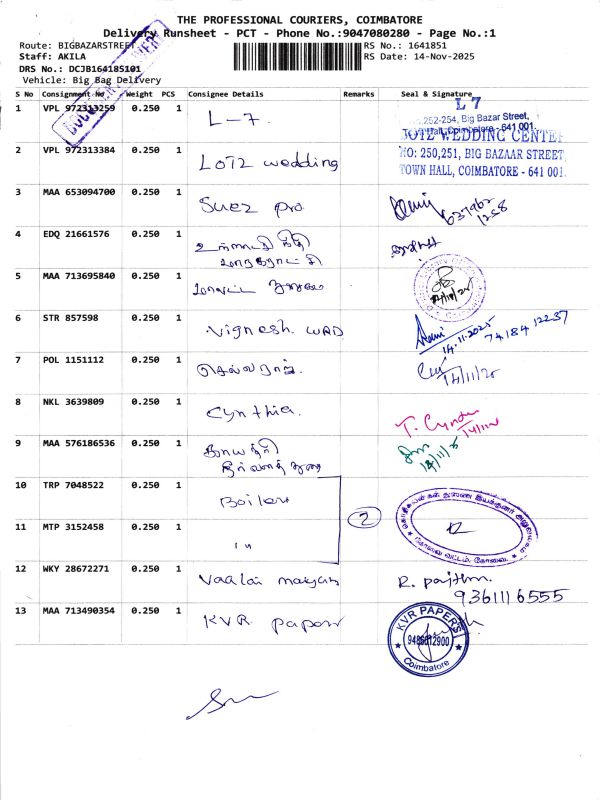 THE PROFESSIONAL COURIERS, COIMBATORE
Delivery Runsheet - PCT - Phone No.:9047080280 - Page No.:1
Route: BIGBAZARSTREET
RS No.: 1641851
Staff: AKILA
RS Date: 14-Nov-2025
DRS No.: DCJB164185101
Vehicle: Big Bag Delivery
S No Consignment No Weight PCS Consignee Details Remarks Seal & Signature
1 VPL 972313259 0.250 1 L-7.
L 7
252-254, Big Bazar Street,
Coimbatore - 641 001.
LOTZ WEDDING CENTER
NO: 250,251, BIG BAZAAR STREET,
TOWN HALL, COIMBATORE - 641 001.
2 VPL 972313384 0.250 1 LOTZ wedding
3 MAA 653094700 0.250 1 Suez pro
4 EDQ 21661576 0.250 1
5 MAA 713695840 0.250 1
6 STR 857598 0.250 1 Vignesh
14.11.2025
74184 12237
7 POL 1151112 0.250 1 செல்வராஜ்.
14/11/25
8 NKL 3639809 0.250 1 Cynthia.
9 MAA 576186536 0.250 1 காயத்ரி
10 TRP 7048522 0.250 1 Boilers
2
11 MTP 3152458 0.250 1 "
12 WKY 28672271 0.250 1
9361116555
13 MAA 713490354 0.250 1 KVR papers
KVR PAPERS
Coimbatore